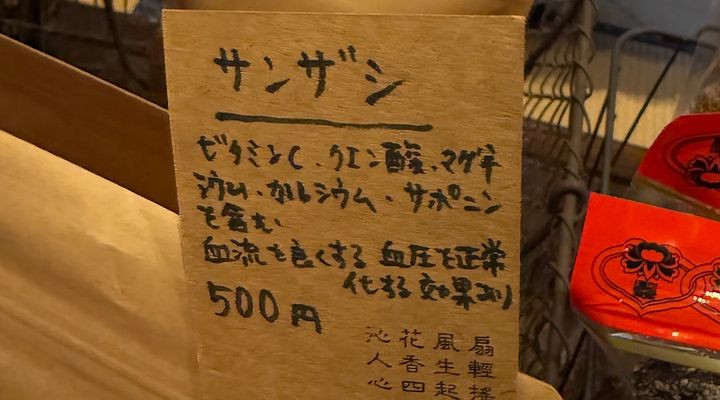 サンザシ
ビタミンC、クエン酸、マグネ
シウム・カルシウム・サポニン
を含む
血流を良くする 血圧を正常
化する効果あり
500円
扇輕搖
風生起
花香四
沁人心